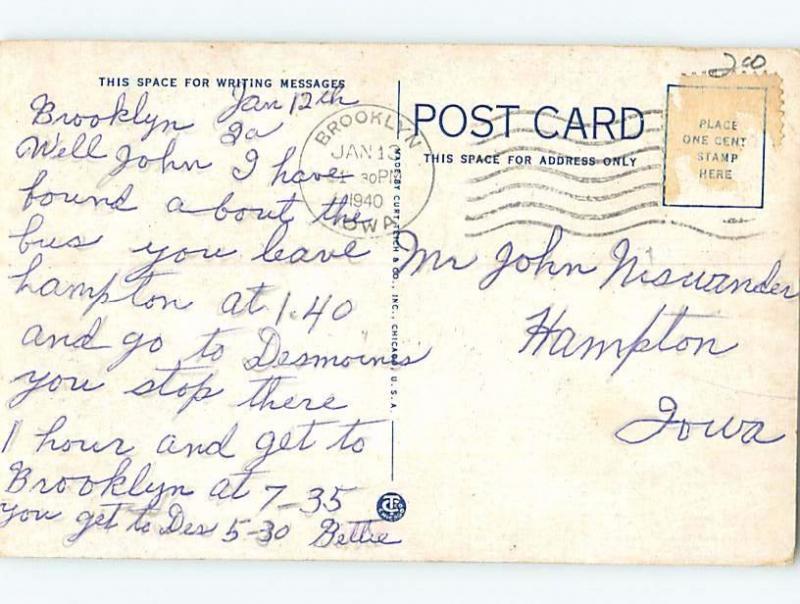 THIS SPACE FOR WRITING MESSAGES
Jan 12th
Brooklyn Ia
Well John I have
found about the
bus you leave
hampton at 1.40
and go to Desmoines
you stop there
1 hour and get to
Brooklyn at 7-35
you get to Des 5-30 Bettie
BROOKLYN
JAN 13
30PM
1940
IOWA
MADE BY CURT TEICH & CO., INC., CHICAGO, U.S.A.
POST CARD
THIS SPACE FOR ADDRESS ONLY
200
PLACE
ONE CENT
STAMP
HERE
Mr John Niswander
Hampton
Iowa